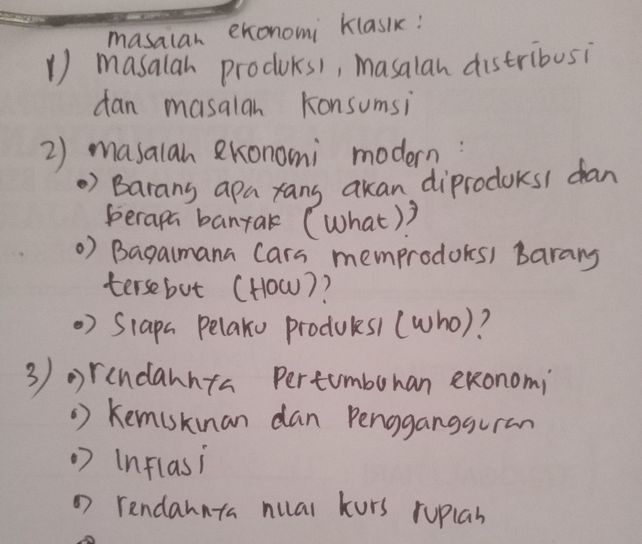 masalah ekonomi klasik :
1) masalah produksi, masalah distribusi
dan masalah konsumsi
2) masalah ekonomi modern :
•) Barang apa yang akan diproduksi dan
berapa banyak (what)?
•) Bagaimana cara memproduksi Barang
tersebut (How)?
•) Siapa pelaku produksi (who)?
3) •) rendahnya pertumbuhan ekonomi
•) kemiskinan dan Penggangguran
•) Inflasi
•) rendahnya nilai kurs rupiah